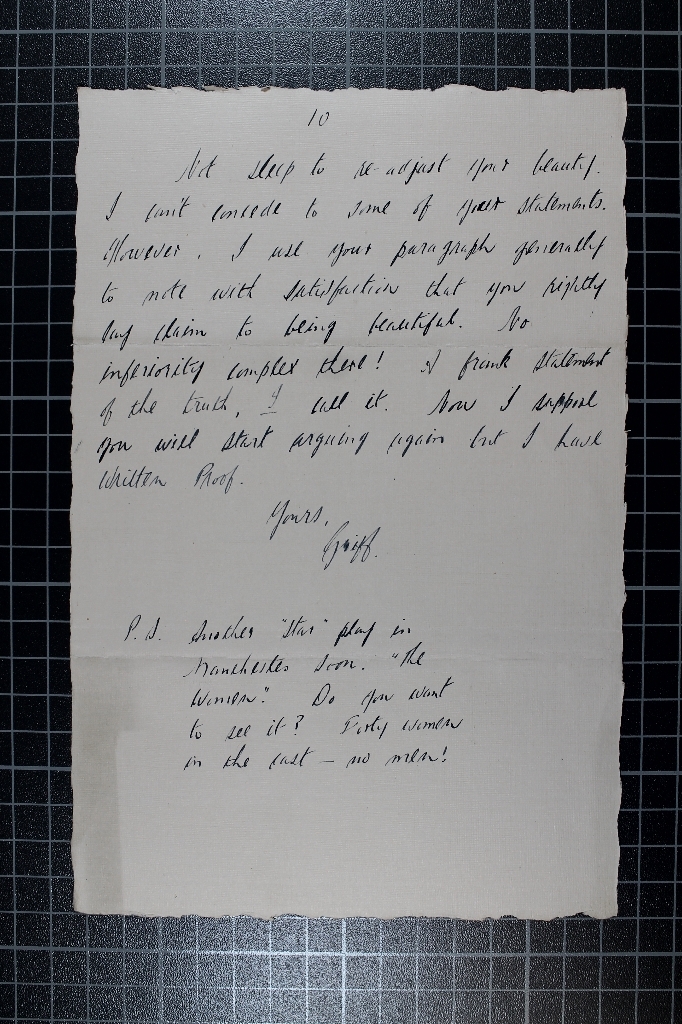 10
Not sleep to re-adjust your beauty.
I can't concede to some of your statements.
However, I use your paragraph generally
to note with satisfaction that you rightly
lay claim to being beautiful. No
inferiority complex there! A frank statement
of the truth, I call it. Now I suppose
you will start arguing again but I have
Written Proof.
Yours,
Griff.
P.S. Another "Star" play in
Manchester soon. "The
Women". Do you want
to see it? Forty women
in the cast – no men!